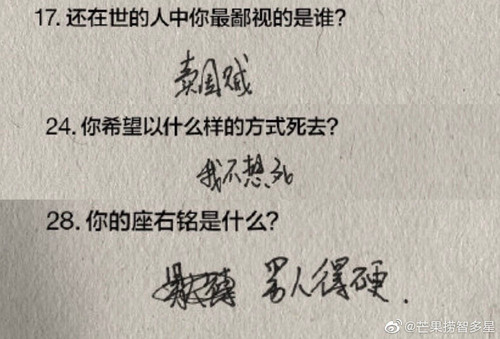 17. 还在世的人中你最鄙视的是谁?
卖国贼
24. 你希望以什么样的方式死去?
我不想死
28. 你的座右铭是什么?
男人得硬.
@芒果捞智多星